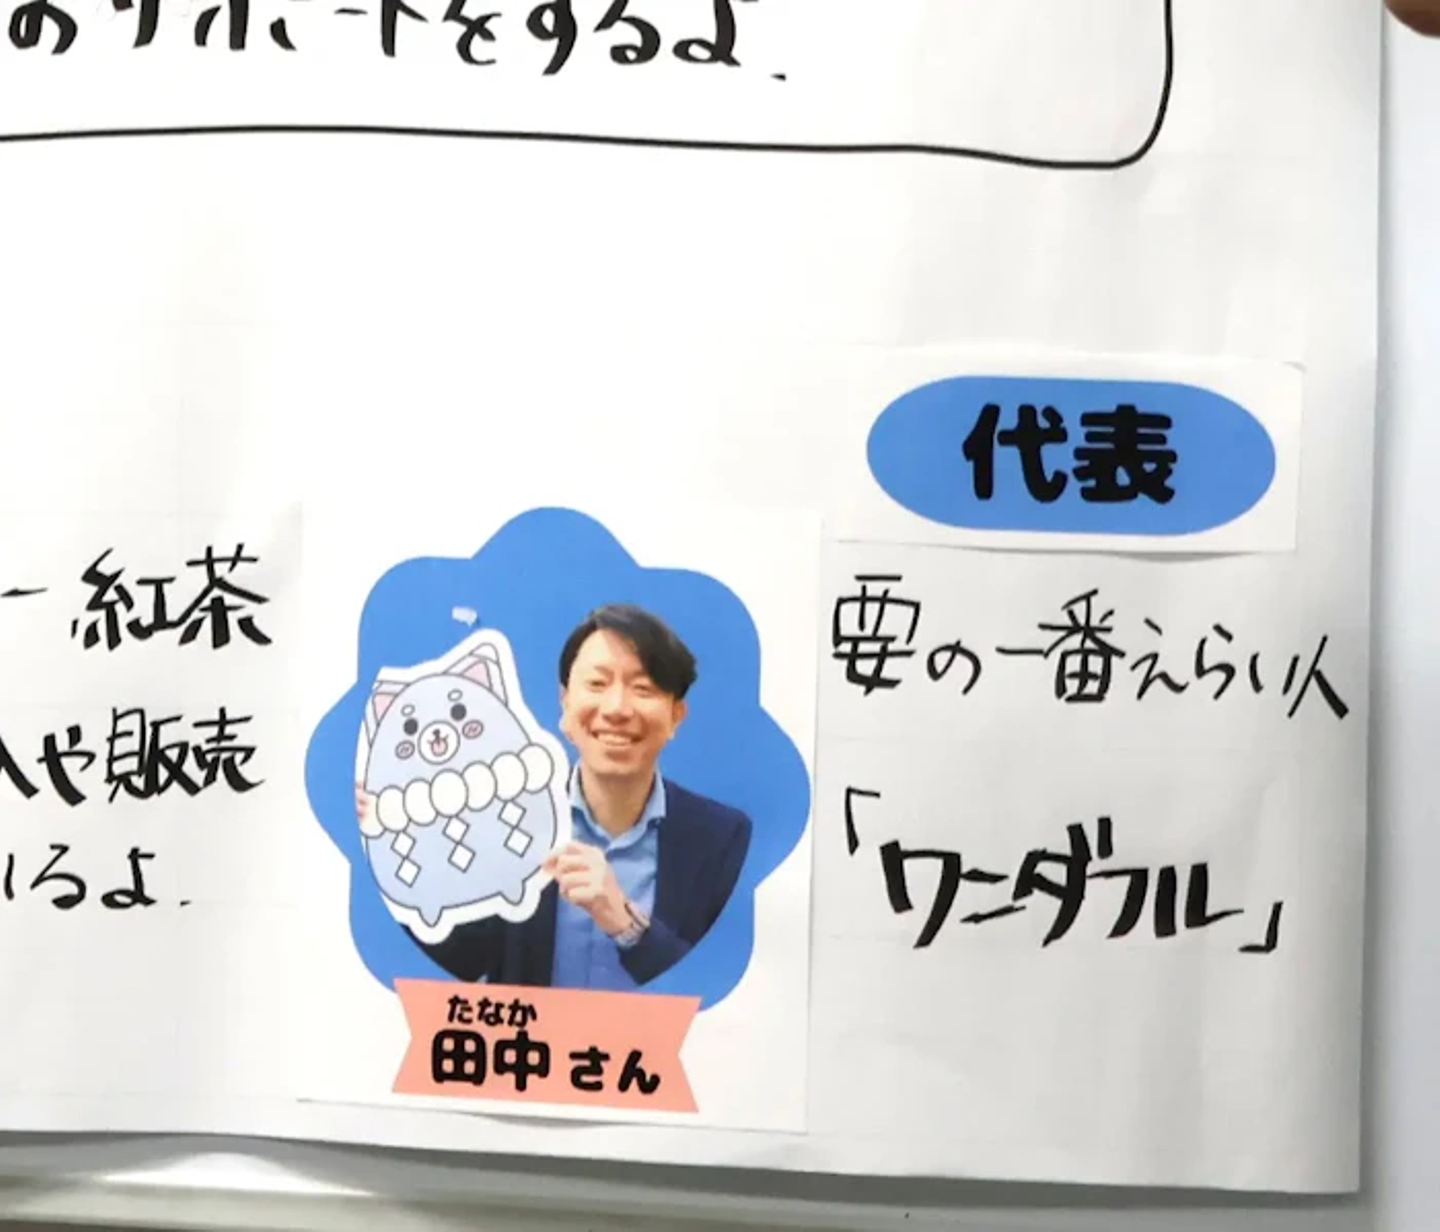 のサポートをするよ.
代表
要の一番えらい人
「ワンダフル」
紅茶
や販売
いるよ.
たなか
田中さん